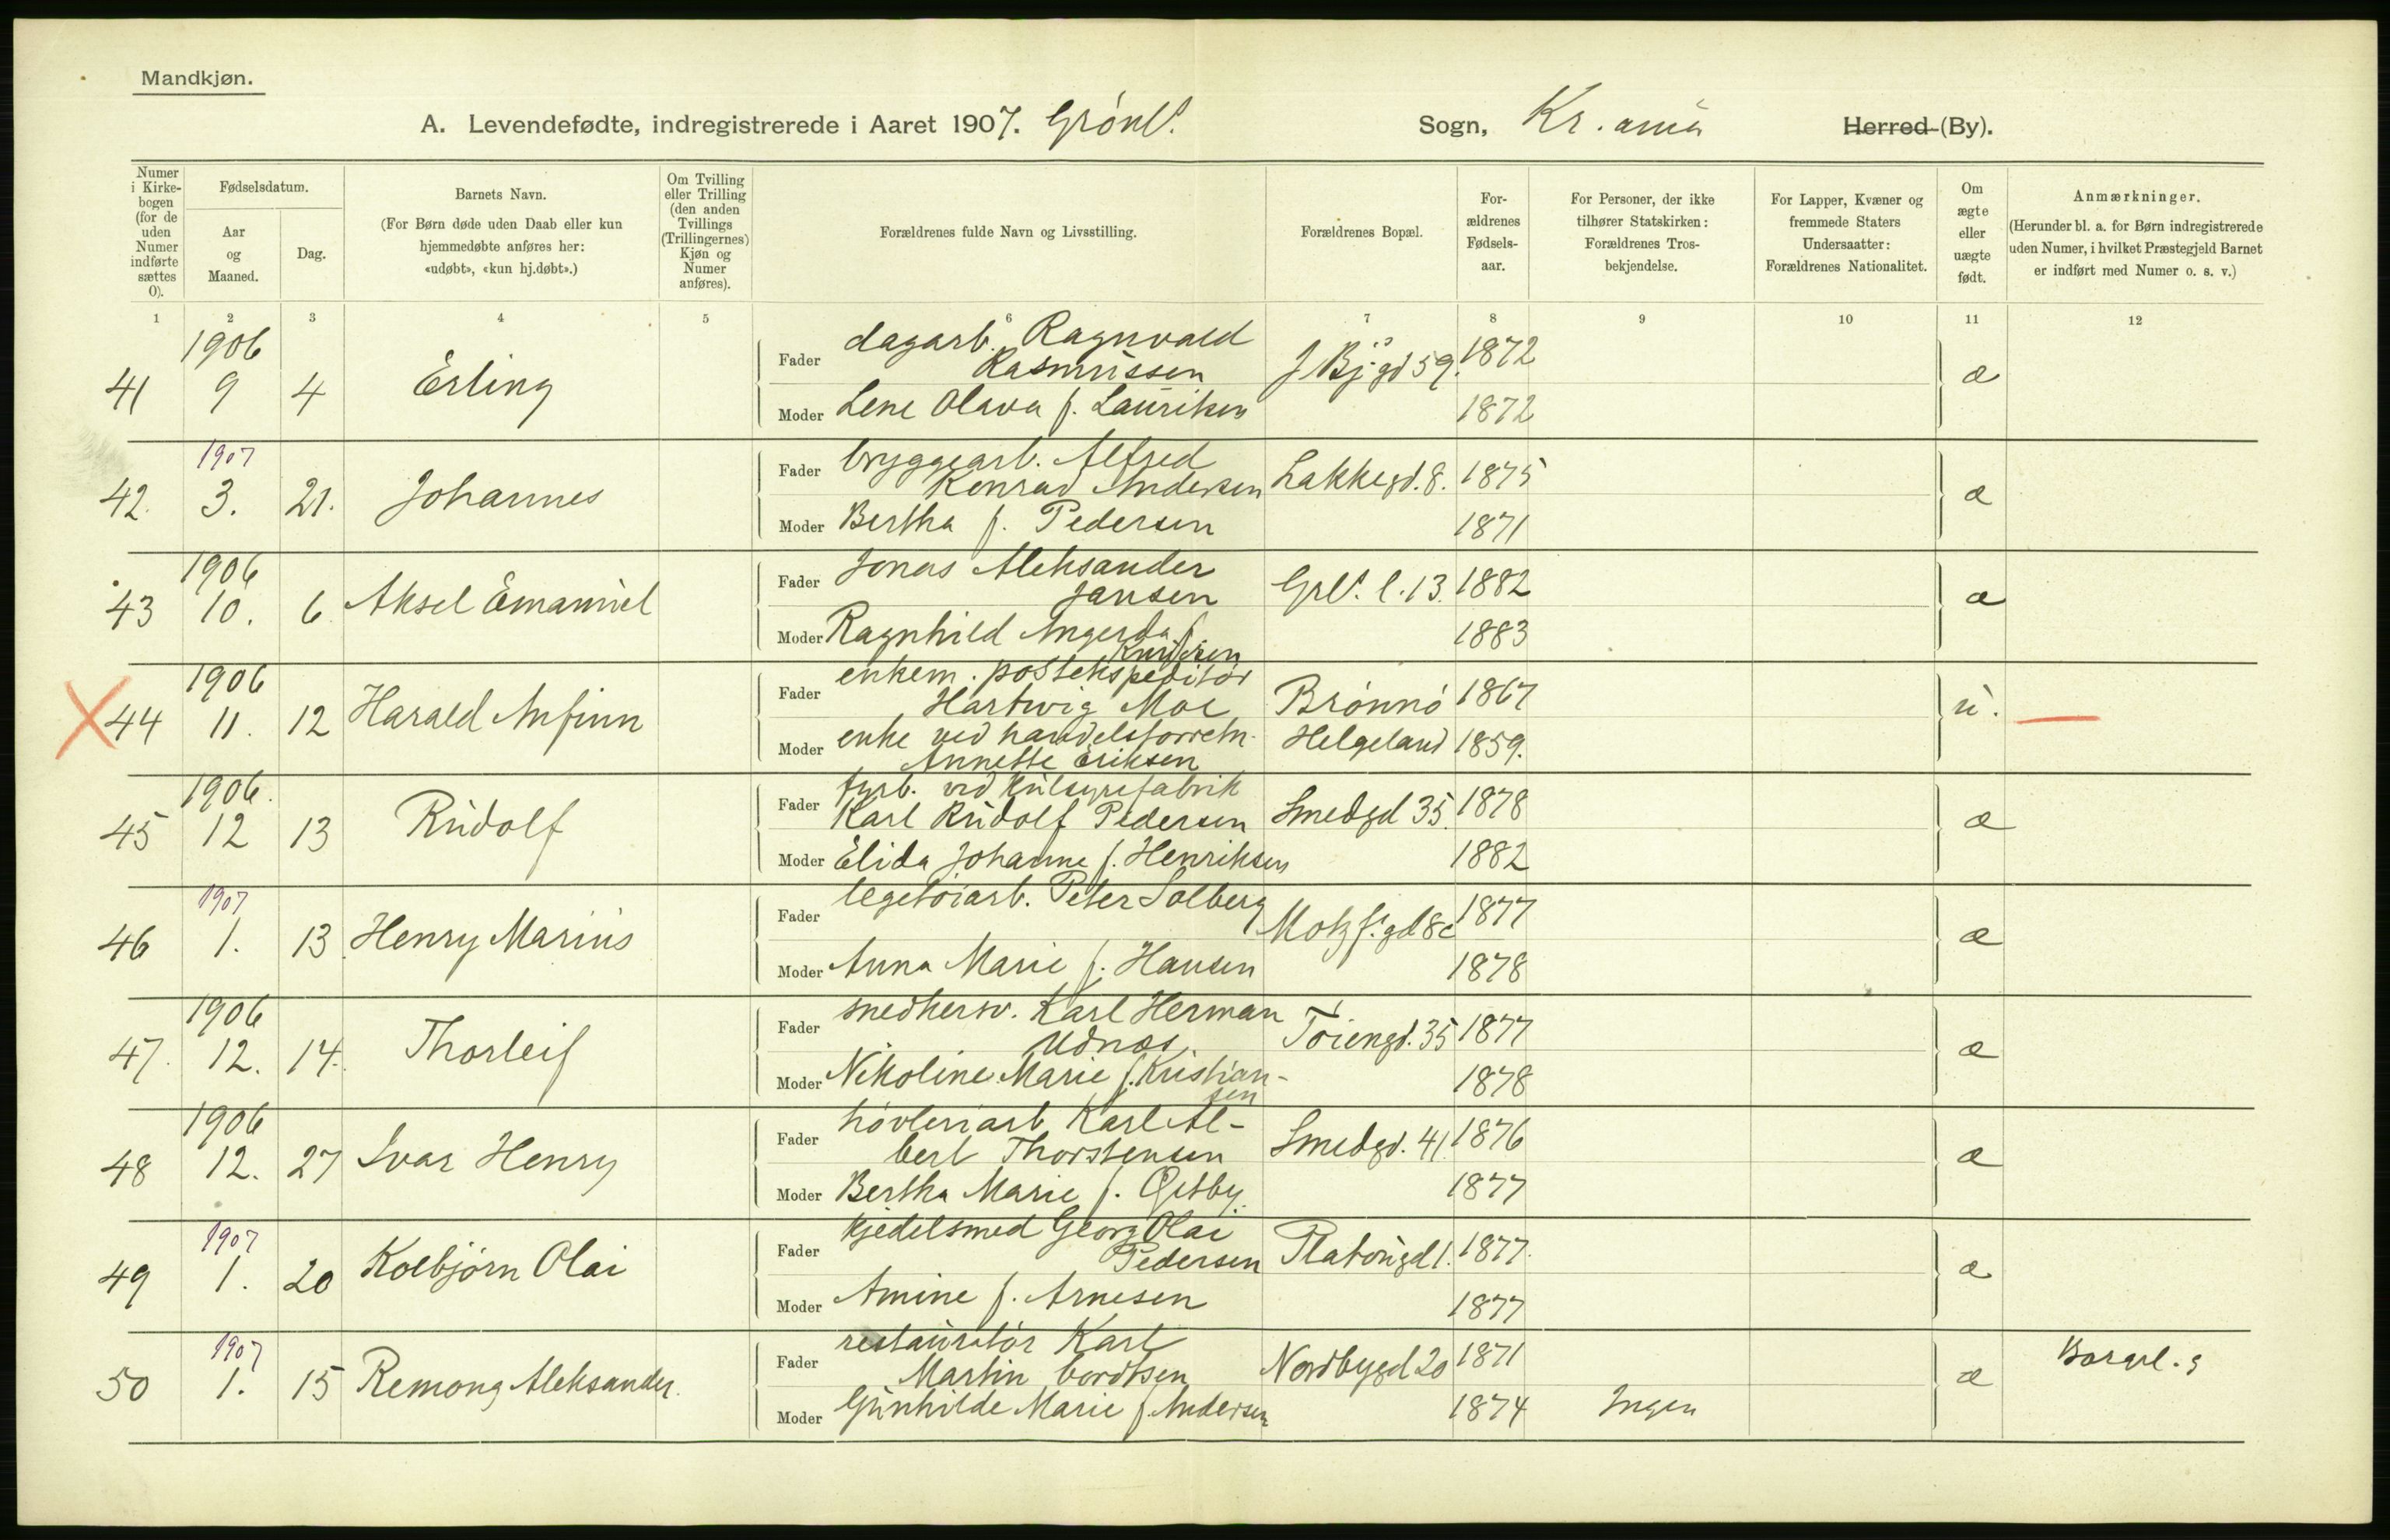 Mandkjøn.
A. Levendefødte, indregistrerede i Aaret 1907. Grønl. Sogn, Kr.ania Herred (By).
Numer i Kirkebogen (for de uden Numer indførte sættes 0).
Fødselsdatum.
Aar og Maaned.
Dag.
Barnets Navn.
(For Børn døde uden Daab eller kun hjemmedøbte anføres her: «udøbt», «kun hj.døbt».)
Om Tvilling eller Trilling (den anden Tvillings (Trillingernes) Kjøn og Numer anføres).
Forældrenes fulde Navn og Livsstilling.
Forældrenes Bopæl.
For-ældrenes Fødsels-aar.
For Personer, der ikke tilhører Statskirken: Forældrenes Tros-bekjendelse.
For Lapper, Kvæner og fremmede Staters Undersaatter: Forældrenes Nationalitet.
Om ægte eller uægte født.
Anmærkninger.
(Herunder bl. a. for Børn indregistrerede uden Numer, i hvilket Præstegjeld Barnet er indført med Numer o. s. v.)
1 2 3 4 5 6 7 8 9 10 11 12
1906
41 9 4 Erling
Fader dagarb. Ragnvald Rasmussen J Bj gd 59. 1872 æ
Moder Lene Olava f. Lauriksen 1872
1907
42. 3. 21. Johannes
Fader bryggearb. Alfred Konrad Andersen Lakkegd. 8. 1875 æ
Moder Bertha f. Pedersen 1871
1906
43 10. 6 Aksel Emanuel
Fader Jonas Aleksander Jansen Grl. l. 13. 1882 æ
Moder Ragnhild Ingerda f. Knudsen 1883
1906
44 11. 12 Harald Anfinn
Fader enkem. postekspeditør Hartvig Moe Brønnø 1867 u.
Moder enke ved handelsforretn. Annette Eriksen Helgeland 1859.
1906.
45 12 13 Rudolf
Fader fyrb. ved kulsyrefabrik Karl Rudolf Pedersen Smedgd 35. 1878 æ
Moder Elida Johanne f. Henriksen 1882
1907
46 1. 13. Henry Marius
Fader legetøiarb. Peter Solberg Motzf. gd. 8c 1877 æ
Moder Anna Marie f. Hansen 1878
1906
47. 12. 14. Thorleif
Fader snedkersv. Karl Herman Udnæs. Tøiengd. 35 1877 æ
Moder Nikoline Marie f. Kristian-sen 1878
1906
48 12. 27 Ivar Henry
Fader høvleriarb. Karl Al-bert Thorstensen Smedgd. 41. 1876 æ
Moder Bertha Marie f. Østby. 1877
1907
49 1. 20 Kolbjørn Olai
Fader kjedelsmed Georg Olai Pedersen Platougd 1. 1877. æ
Moder Amine f. Arnesen 1877
1907
50 1. 15 Remong Aleksander.
Fader restauratør Karl Martin Cordtsen Nordbygd 20 1871 æ
Moder Gunhilde Marie f. Andersen 1874 Ingen